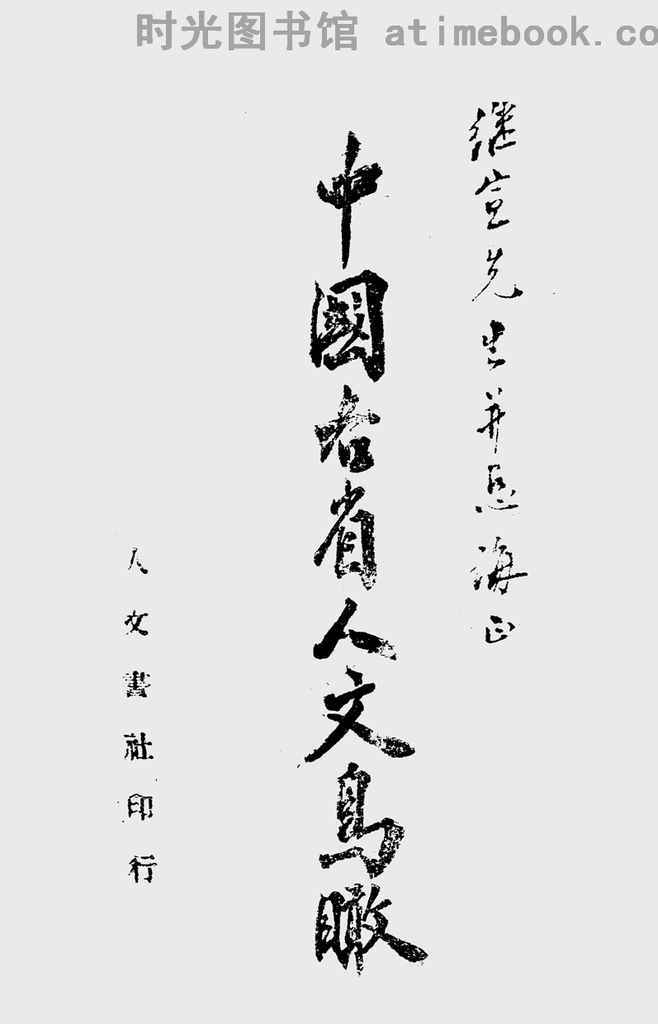 时光图书馆 atimebook.co
继宣先生并恳
海正
中國各省人文鳥瞰
人文書社印行